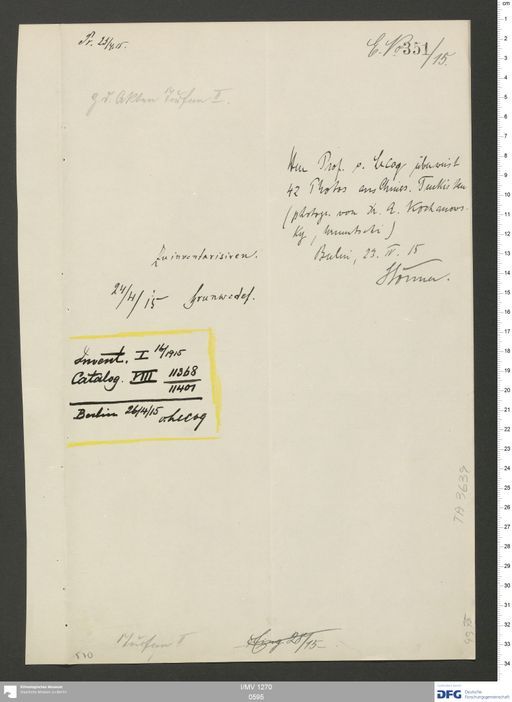 Pr. 23/4.15.
E. No 351/15.
z. d. Akten Turfan II.
Herr Prof. v. Lecoq überweist
42 Photos aus Chines. Turkistan
(photogr. von Dr. A. Kochanows-
ky, Urumtschi)
Berlin, 23. IV. 15
Stönner.
Zu inventarisiren.
24/4/15 Grünwedel.
Invent. I 14/1915
Catalog. VIII 11368
11401
Berlin 26/4/15 v Lecoq
TA 3639
Turfan II
/15
I/MV 1270
0595
Ethnologisches Museum
Staatliche Museen zu Berlin
DFG Deutsche
Forschungsgemeinschaft